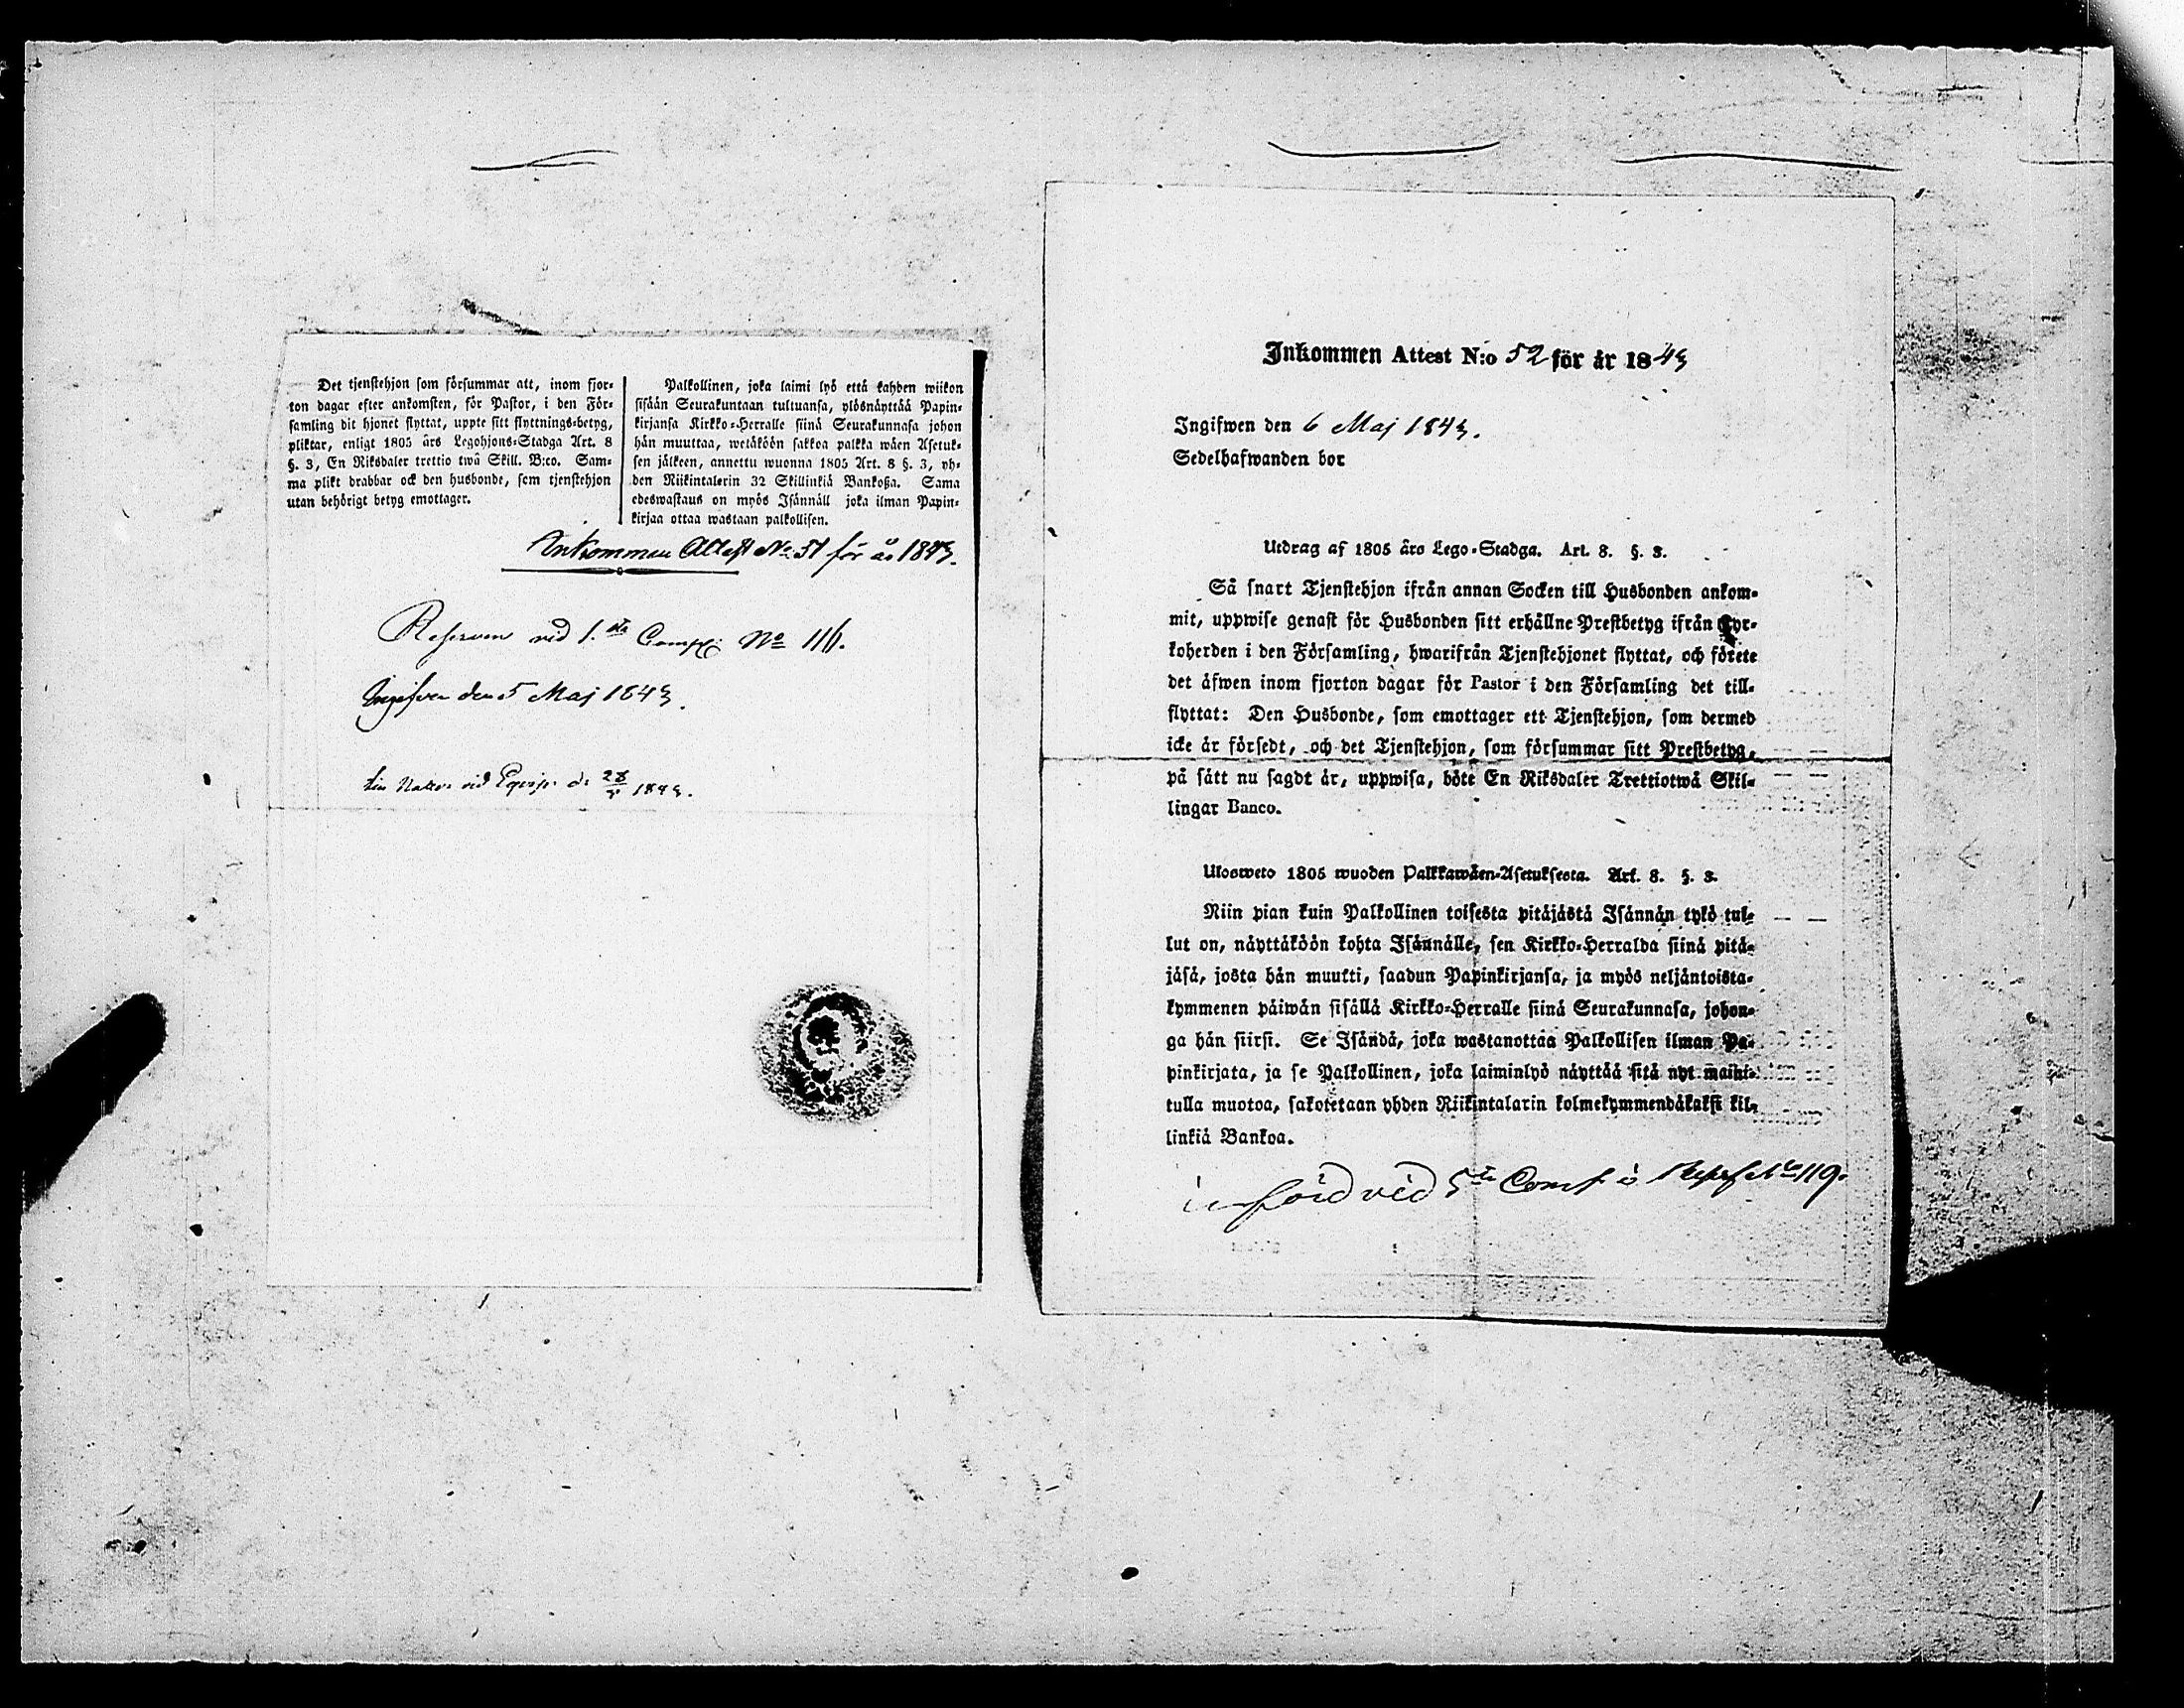 Det tjenstehjon som försummar att, inom fjor-
ton dagar efter ankomsten, för Pastor, i den För-
samling dit hjonet flyttat, uppte sitt flyttnings-betyg,
pliktar, enligt 1805 års Legohjons-Stadga Art. 8
§. 3, En Riksdaler trettio twå Skill. B:co. Sam-
ma plikt drabbar ock den husbonde, som tjenstehjon
utan behörigt betyg emottager.
Palkollinen, joka laimi lyö että kahden wiikon
sisään Seurakuntaan tultuansa, ylösnäyttää Papin-
kirjansa Kirkko-Herralle siinä Seurakunnasa johon
hän muuttaa, wetäköön sakkoa palkka wäen Asetuk-
sen jälkeen, annettu wuonna 1805 Art. 8 §. 3, yh-
den Riikintalerin 32 Skillinkiä Bankoßa. Sama
edeswastaus on myös Isännäll joka ilman Papin-
kirjaa ottaa wastaan palkollisen.
Inkommen Attest No. 51 för år 1843.
Reserven vid 1.sta Comp: No 116.
Ingifven den 5 Maj 1843.
vid Equip. d. 28/5 1843.
Inkommen Attest N:o 52 för år 1843
Ingifwen den 6 Maj 1843.
Sedelhafwanden bor
Utdrag af 1805 års Lego-Stadga. Art. 8. §. 3.
Så snart Tjenstehjon ifrån annan Socken till Husbonden ankom-
mit, uppwise genast för Husbonden sitt erhållne Prestbetyg ifrån Kyr-
koherden i den Församling, hwarifrån Tjenstehjonet flyttat, och förete
det äfwen inom fjorton dagar för Pastor i den Församling det till-
flyttat: Den Husbonde, som emottager ett Tjenstehjon, som dermed
icke är försedt, och det Tjenstehjon, som försummar sitt Prestbetyg,
på sätt nu sagdt är, uppwisa, böte En Riksdaler Trettiotwå Skil-
lingar Banco.
Ulosweto 1805 wuoden Palkkawäen-Asetuksesta. Art. 8. §. 3.
Niin pian kuin Palkollinen toisesta pitäjästä Isännän tykö tul-
lut on, näyttäköön kohta Isännälle, sen Kirkko-Herralda siinä pitä-
jäsä, josta hän muutti, saadun Papinkirjansa, ja myös neljäntoista-
kymmenen päiwän sisällä Kirkko-Herralle siinä Seurakunnasa, johon-
ga hän siirsi. Se Isändä, joka wastanottaa Palkollisen ilman Pa-
pinkirjata, ja se Palkollinen, joka laiminlyö näyttää sitä nyt maini-
tulla muotoa, sakotetaan yhden Riikintalarin kolmekymmendäkaksi kil-
linkiä Bankoa.
införd vid 5te Comp No 119.